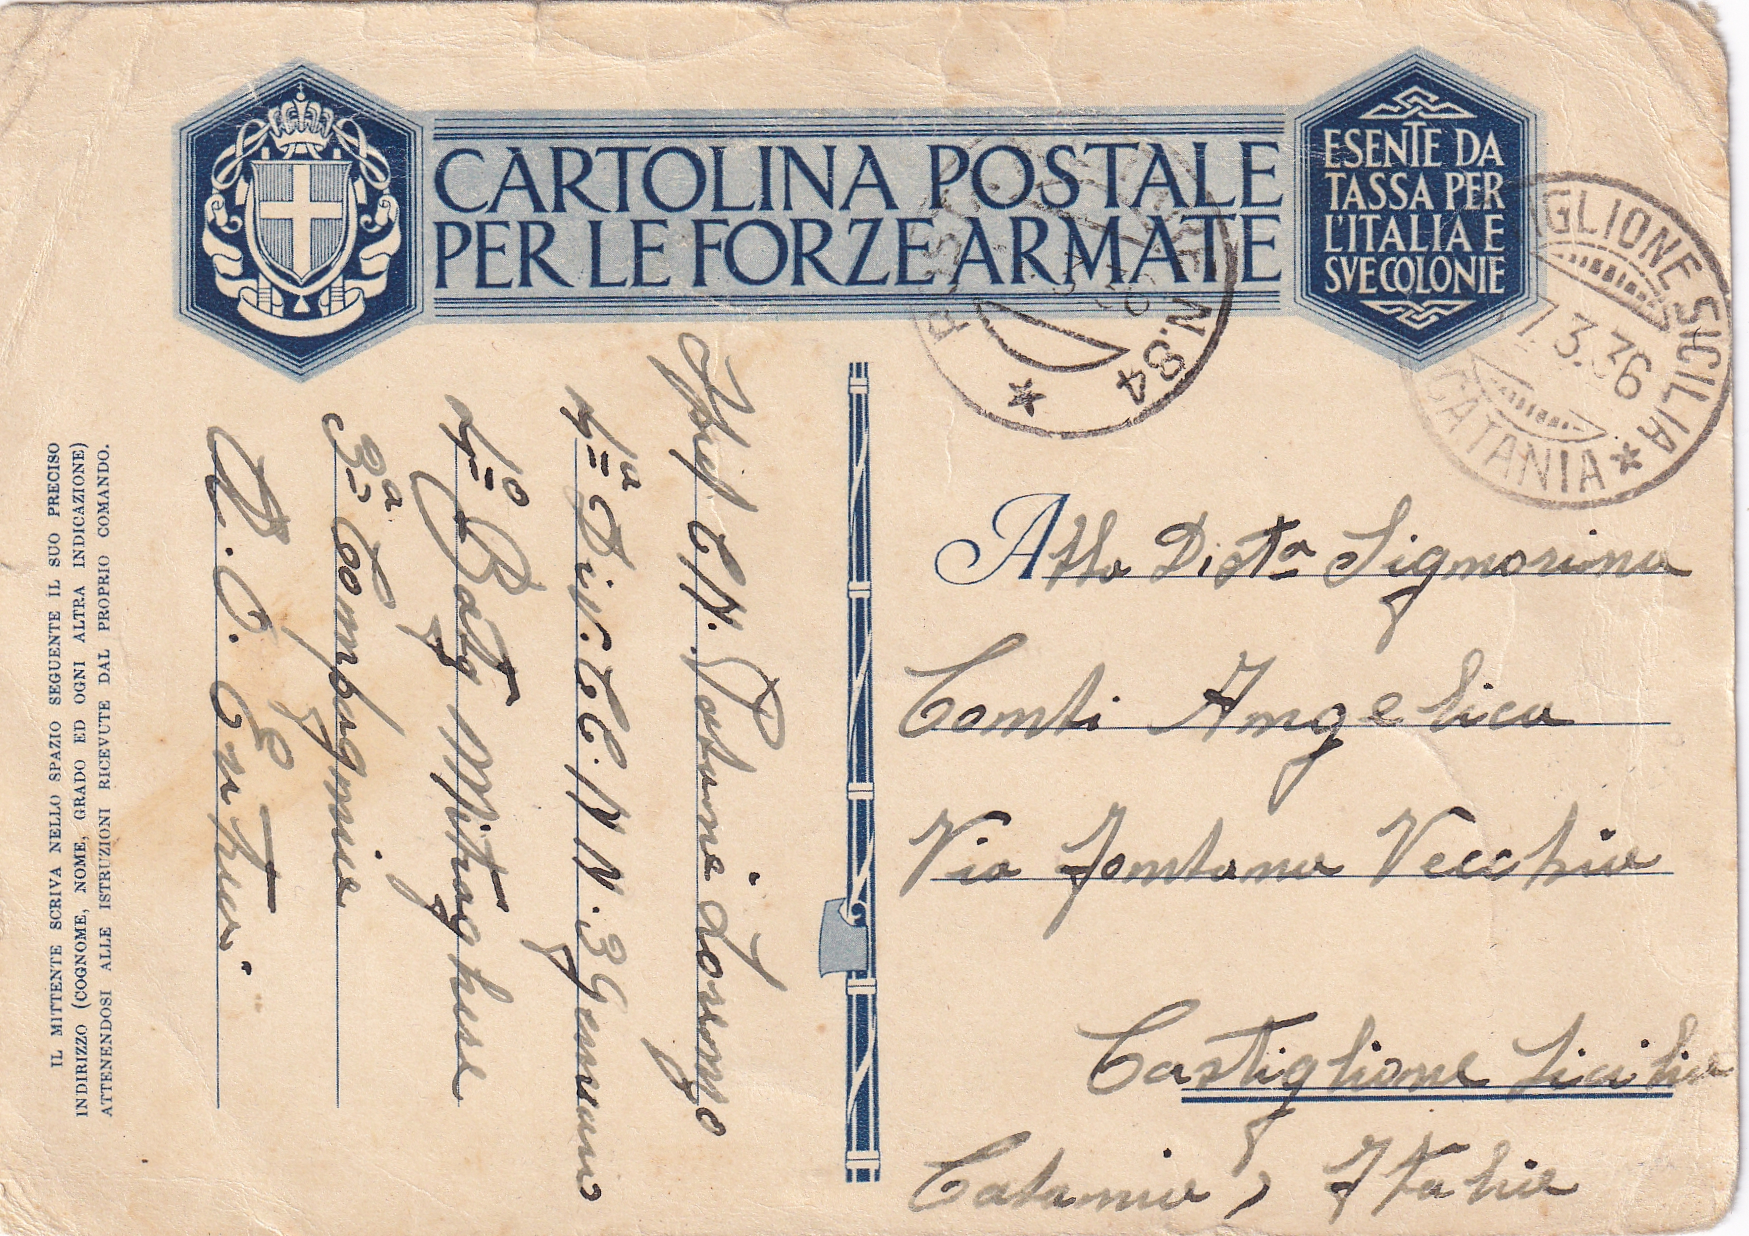 CARTOLINA POSTALE
PER LE FORZE ARMATE
ESENTE DA
TASSA PER
L'ITALIA E
SVE COLONIE
N. 84
IGLIONE SICILIA
7.3.36
CATANIA
Alla Dista Signorina
Conti Angelica
Via Fontana Vecchia
Castiglione Sicilia
Catania, Italia
C.N. Patanè Lorenzo
4ª Div. CC. NN. 3 Gennaio
4º Batg Mitraglese
3ª Compagnia
A.O. Eritrea
IL MITTENTE SCRIVA NELLO SPAZIO SEGUENTE IL SUO PRECISO
INDIRIZZO (COGNOME, NOME, GRADO ED OGNI ALTRA INDICAZIONE)
ATTENENDOSI ALLE ISTRUZIONI RICEVUTE DAL PROPRIO COMANDO.